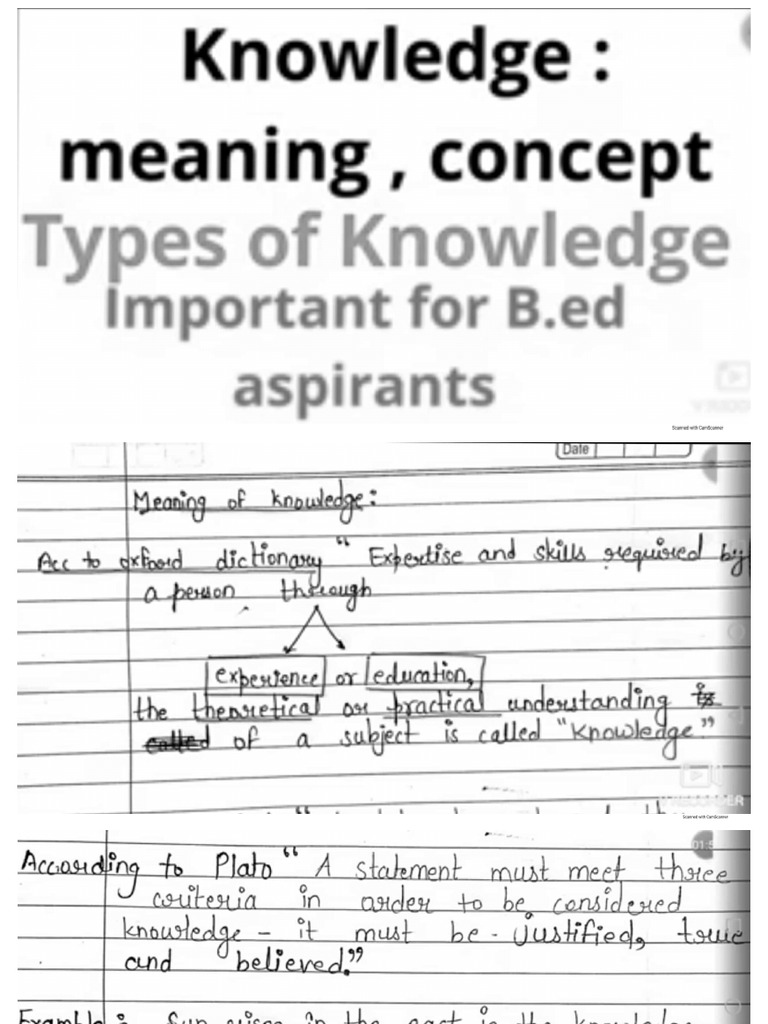 Knowledge :
meaning , concept
Types of Knowledge
Important for B.ed
aspirants
Scanned with CamScanner
Date
Meaning of knowledge:
Acc to oxford dictionary " Expertise and skills required by
a person through
experience or education,
the theoretical or practical understanding is
called of a subject is called "knowledge."
Scanned with CamScanner
According to Plato " A statement must meet three
criteria in order to be considered
knowledge - it must be - justified, true
and believed."
Example : Sun rises in the east is the knowledge